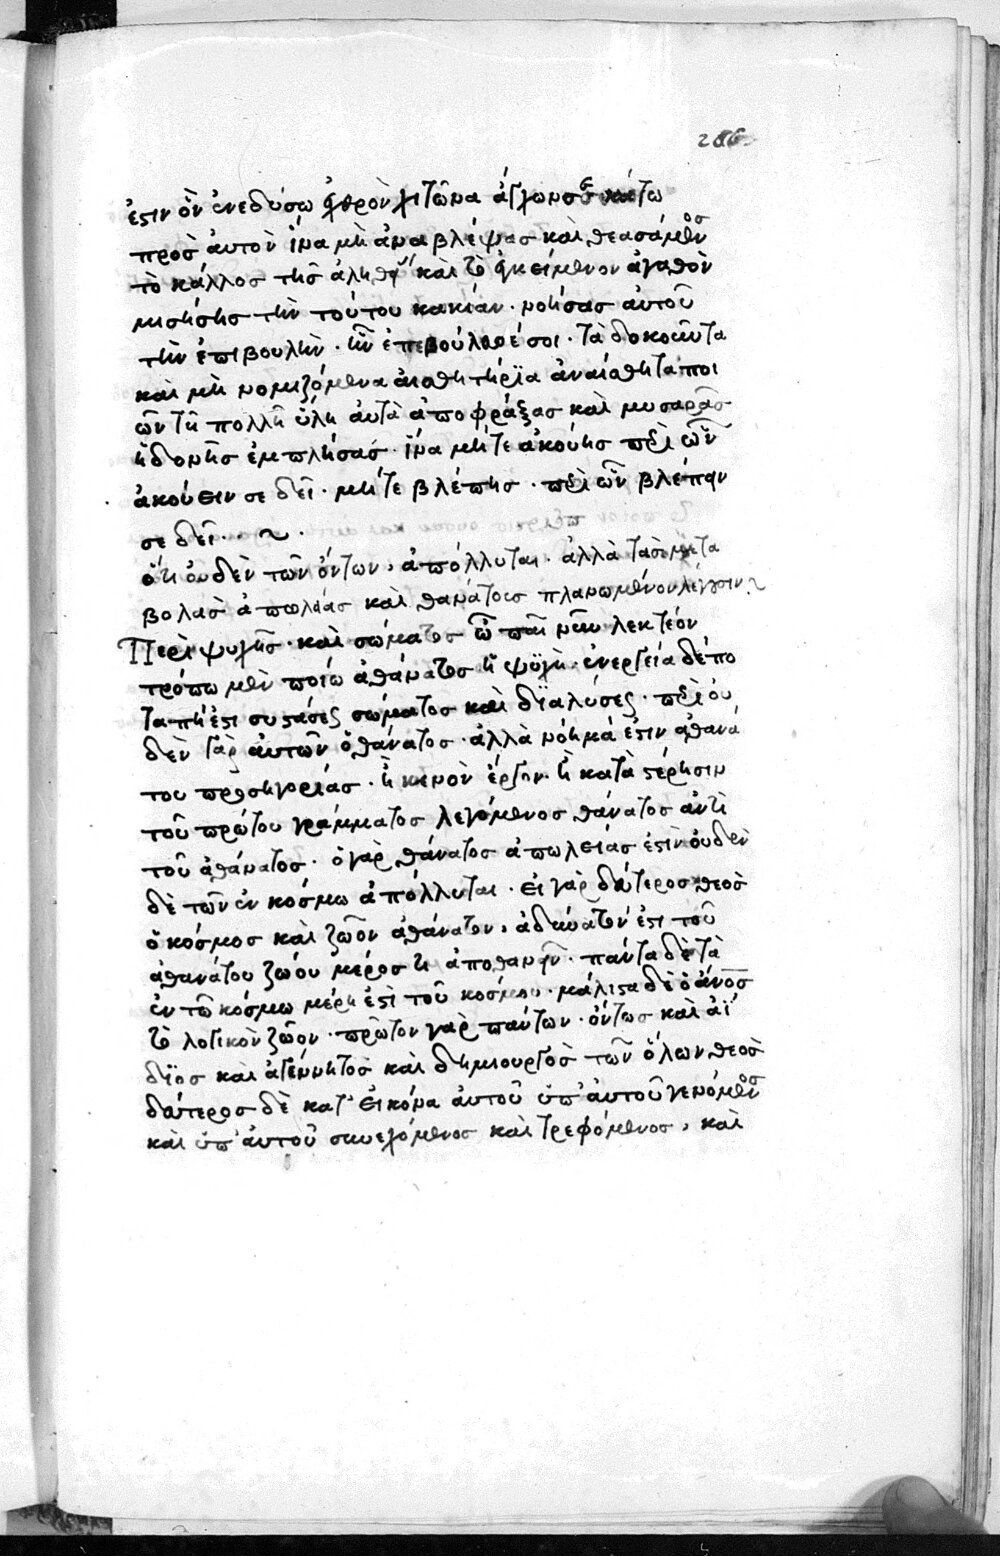 286
ἐστιν ὃν ἐνεδύσω ἐχθρὸν χιτῶνα ἄγχων σε κάτω
πρὸς αὐτὸν ἵνα μὴ ἀναβλέψας καὶ θεασάμενος
τὸ κάλλος τῆς ἀληθείας καὶ τὸ ἐγκείμενον ἀγαθὸν
μισήσης τὴν τούτου κακίαν· νοήσας αὐτοῦ
τὴν ἐπιβουλὴν· ἣν ἐπεβούλευσέ σοι· τὰ δοκοῦντα
καὶ μὴ νομιζόμενα αἰσθητήρϊα ἀναίσθητα ποι
ῶν τῆ πολλῆ ὕλη αὐτὰ ἀποφράξας καὶ μυσαρᾶς
ἡδονῆς ἐμπλήσας· ἵνα μήτε ἀκούης περὶ ὧν
ἀκούειν σε δεῖ· μήτε βλέπης· περὶ ὧν βλέπειν
σε δεῖ··~·
ὅτι οὐδὲν τῶν ὄντων, ἀπόλλυται· ἀλλὰ τὰς μετα
βολὰς ἀπωλείας καὶ θανάτους πλανώμενοι λέγουσιν
Περὶ ψυχῆς· καὶ σώματος ὦ παῖ νῦν λεκτέον
τρόπω μὲν ποίω ἀθάνατος ἡ ψυχὴ· ἐνεργεία δὲ πο
ταπή ἐστι συστάσεως σώματος καὶ διαλύσεως· περὶ οὐ
δὲν γὰρ αὐτῶν ὁ θάνατος· ἀλλὰ νόημά ἐστιν ἀθανά
του προσηγορίας· ἢ κενὸν ἔργον· ἢ κατὰ στέρησιν
τοῦ πρώτου γράμματος λεγόμενος θάνατος ἀντὶ
τοῦ ἀθάνατος· ὁ γὰρ θάνατος ἀπωλείας ἐστὶν οὐδὲν
δὲ τῶν ἐν κόσμω ἀπόλλυται· εἰ γὰρ δεύτερος θεὸς
ὁ κόσμος καὶ ζῶον ἀθάνατον, ἀδύνατόν ἐστι τοῦ
ἀθανάτου ζώου μέρος τι ἀποθανεῖν· πάντα δὲ τὰ
ἐν τῶ κόσμω μέρη ἐστὶ τοῦ κόσμου· μάλιστα δὲ ὁ ἄνος
τὸ λογικὸν ζῶον· πρῶτον γὰρ πάντων· ὄντως καὶ ἀΐ
διος καὶ ἀγέννητος καὶ δημιουργὸς τῶν ὅλων θεὸς
δεύτερος δὲ κατ' εἰκόνα αὐτοῦ ὑπ' αὐτοῦ γενόμενος
καὶ ὑπ' αὐτοῦ συνεχόμενος καὶ τρεφόμενος, καὶ